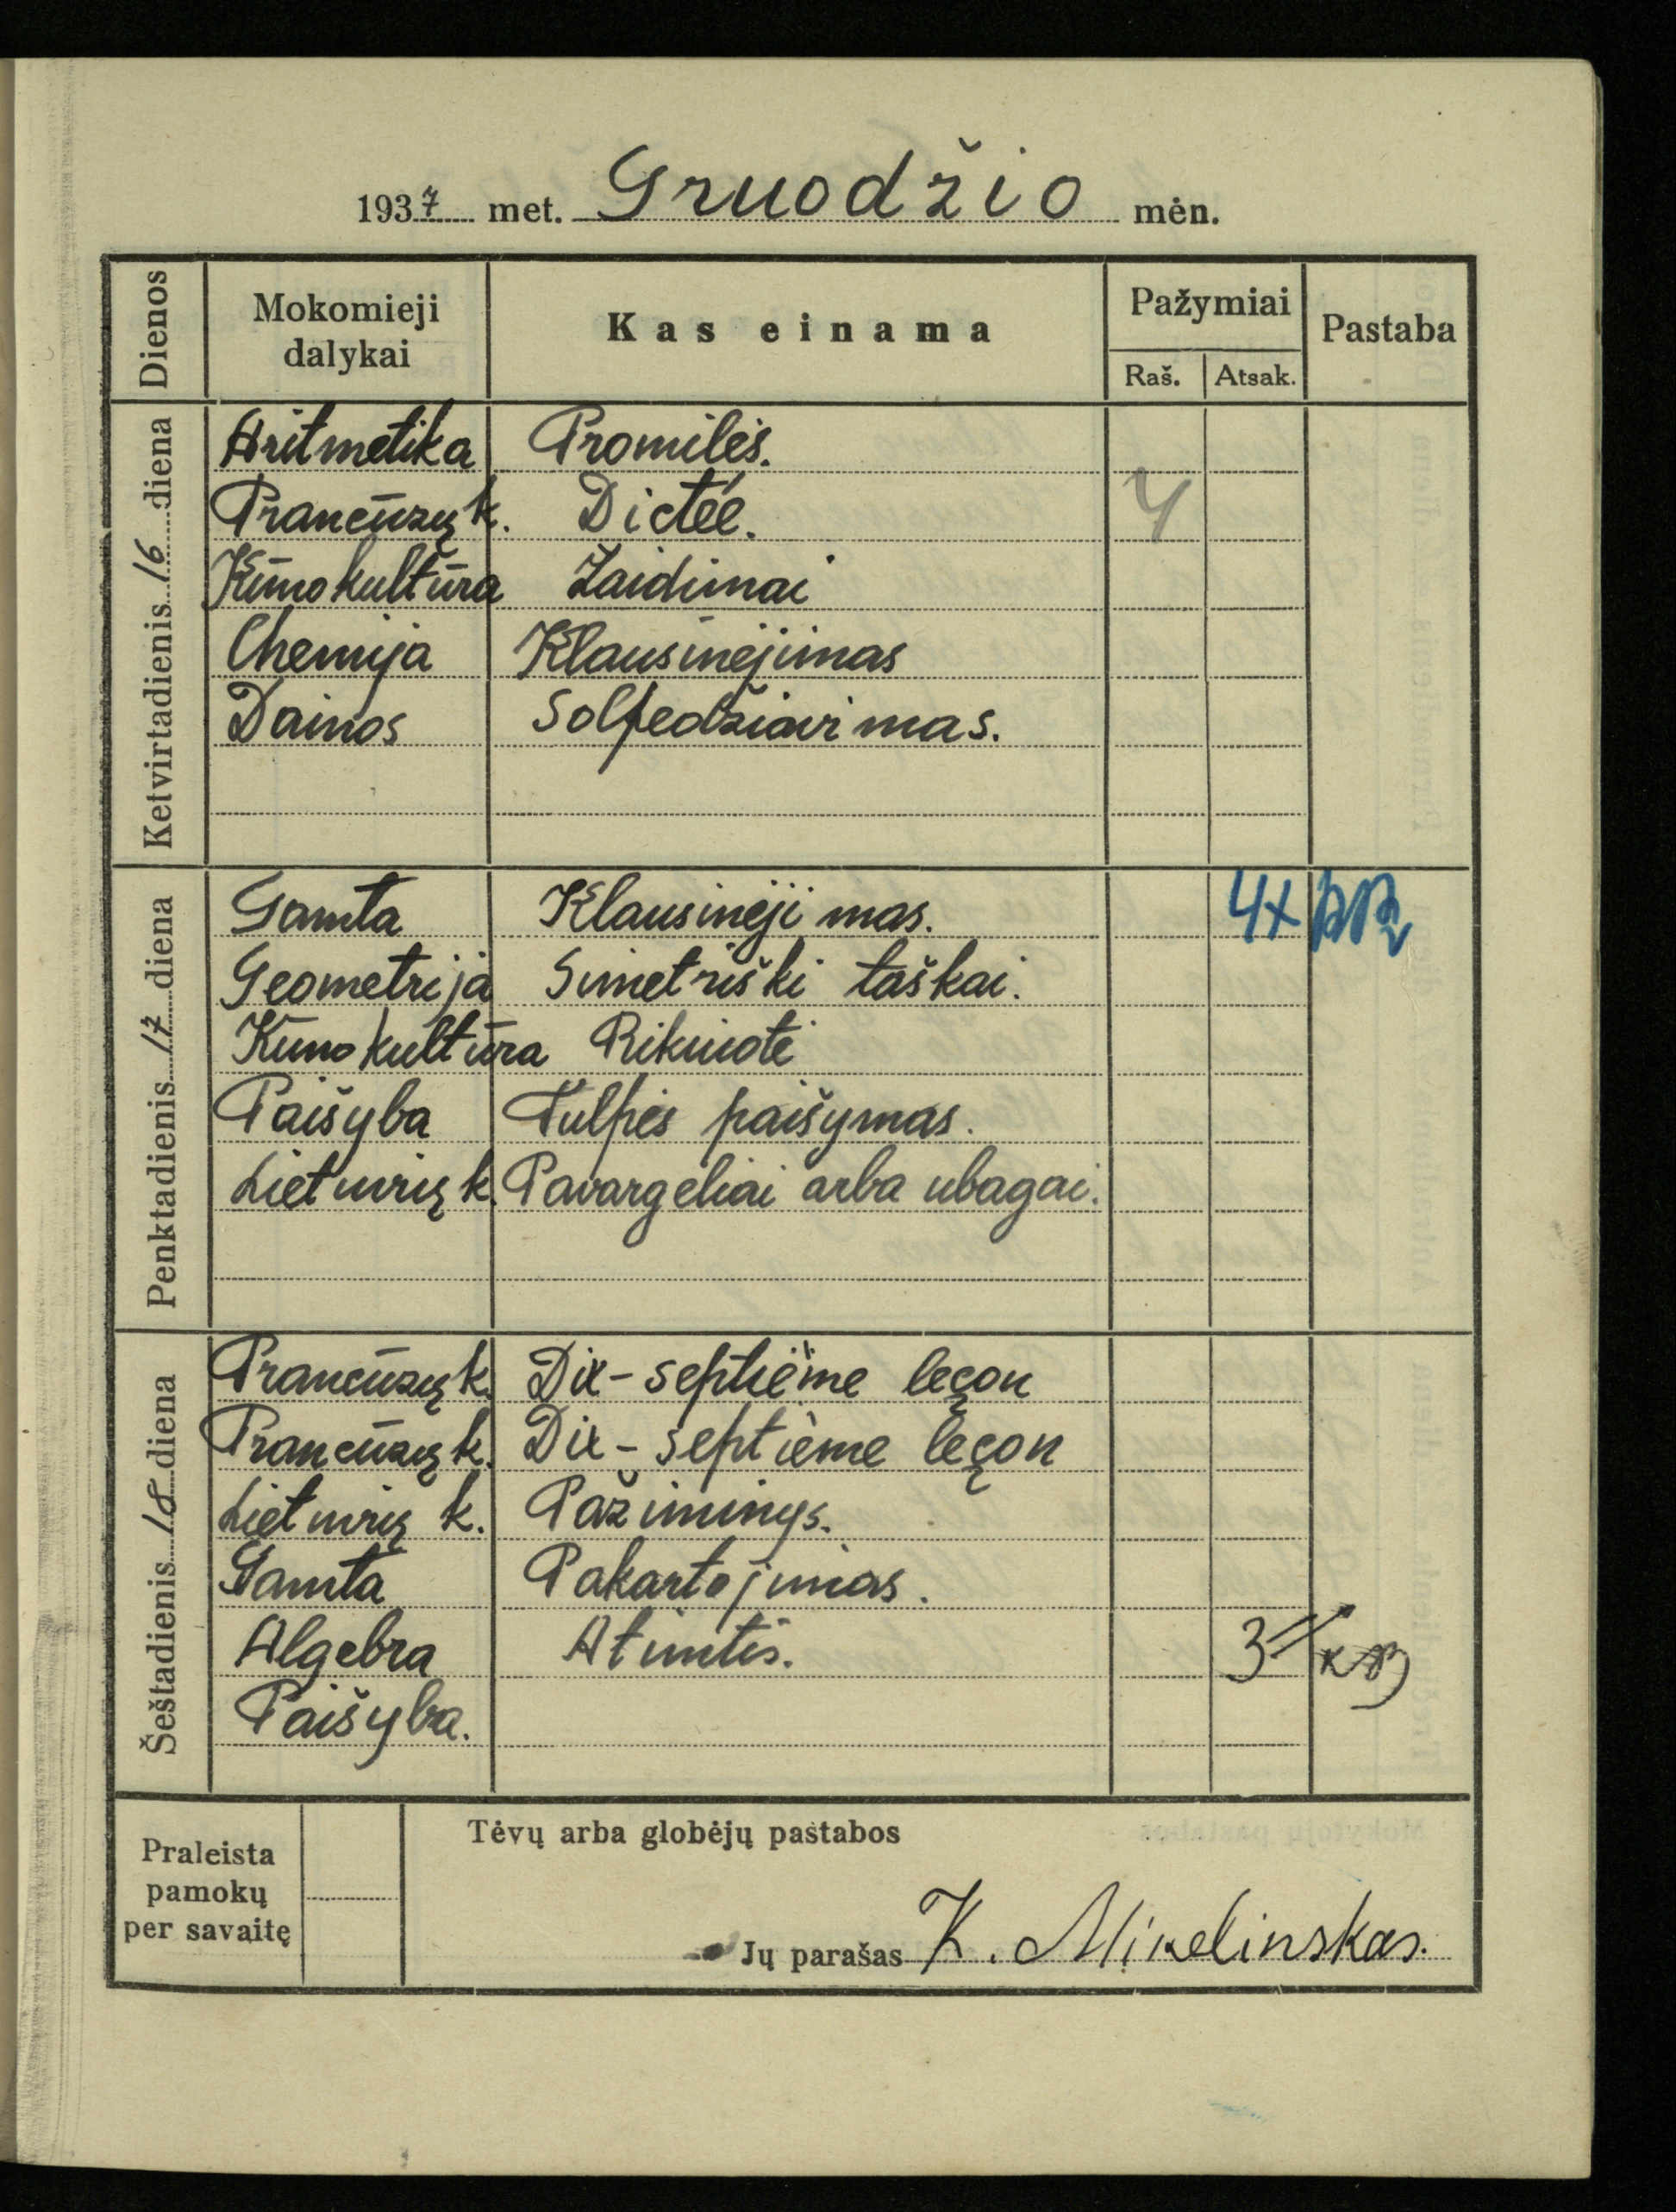 1937 met. Gruodžio mėn.
Dienos Mokomieji dalykai Kas einama Pažymiai Pastaba
Raš. Atsak.
Ketvirtadienis 16 diena
Aritmetika Promilės.
Prancūzų k. Dictée. 4
Kūno kultūra Žaidimai
Chemija Klausinėjimas
Dainos Solfedžiavimas.
Penktadienis 17 diena
Gamta Klausinėjimas. 4x
Geometrija Simetriški taškai.
Kūno kultūra Rikiuotė
Paišyba Tulpės paišymas.
Lietuvių k. Pavargėliai arba ubagai.
Šeštadienis 18 diena
Prancūzų k. Dix-septième leçon
Prancūzų k. Dix-septième leçon
Lietuvių k. Pažiminys.
Gamta Pakartojimas.
Algebra Atimtis. 3
Paišyba.
Praleista pamokų per savaitę
Tėvų arba globėjų pastabos
Jų parašas K. Mikelinskas.